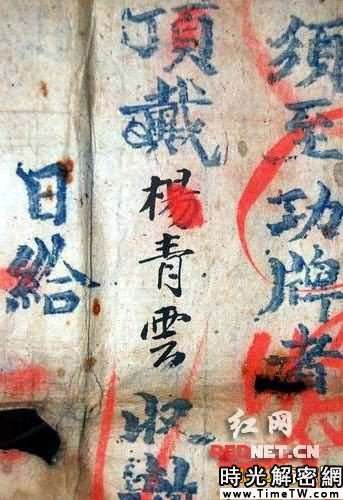 須至功牌者
頂戴楊青雲收執
日給
红网
REDNET.CN
時光解密網
www.TimeTW.com